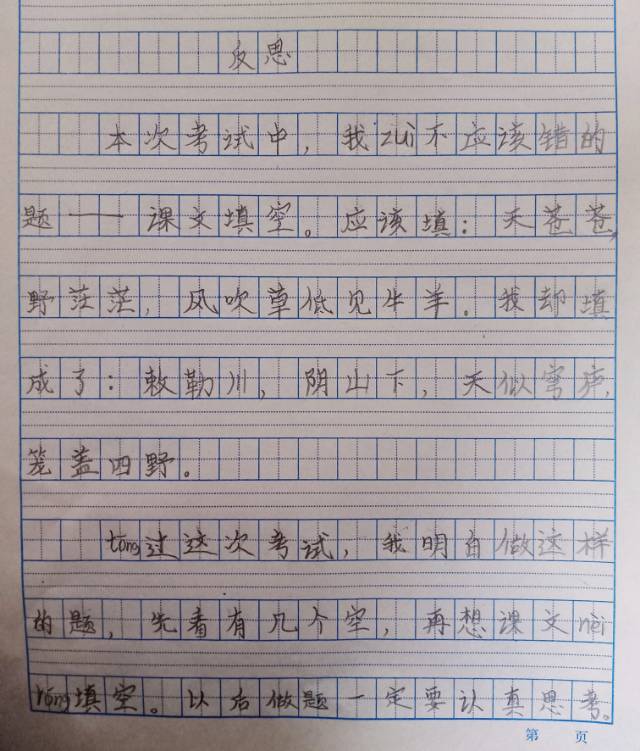 反思
本次考试中，我zuì不应该错的
题——课文填空。应该填：天苍苍，
野茫茫，风吹草低见牛羊。我却填
成了：敕勒川，阴山下，天似穹庐，
笼盖四野。
tōng过这次考试，我明白做这样
的题，先看有几个空，再想课文nèi
róng填空。以后做题一定要认真思考。
第 页